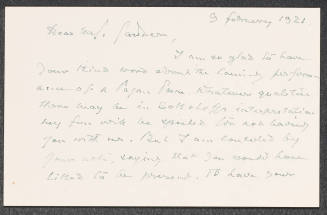 9 February 1921.
Dear Mrs. Gardner,
I am so glad to have
your kind word about the coming perform-
ance of a Pagan Poem. Whatever qualities
there may be in interpretation
my fun will be spoiled in not having
you with me. But I am consoled by
your note, saying that you would have
liked to be present. To have your